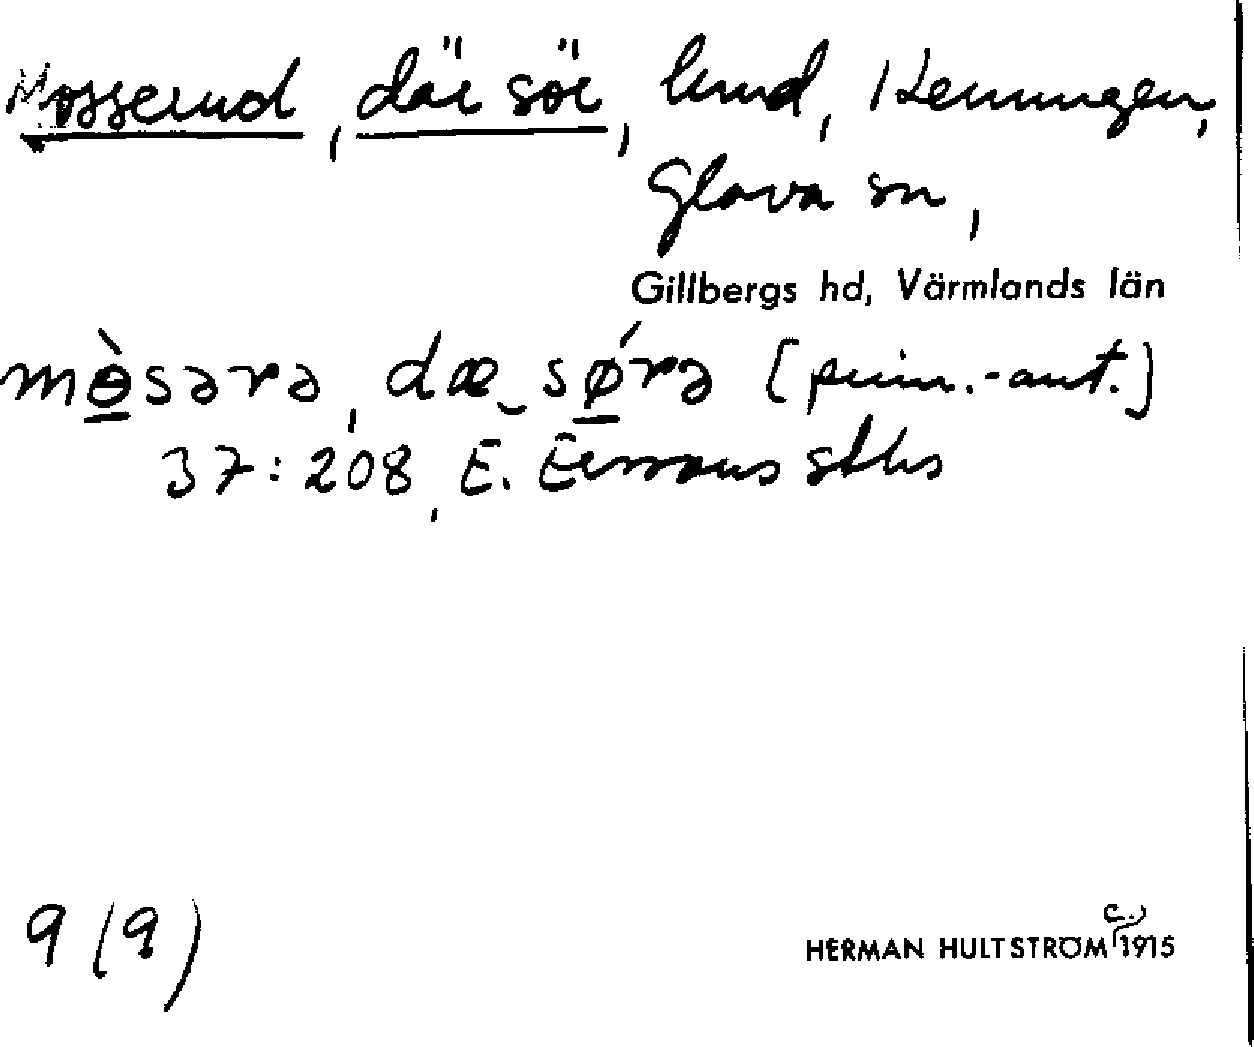 Mosserud, där sör, lund, Henungen,
Glava sn,
Gillbergs hd, Värmlands län
mɵ̀sərə, dæ‿sǿrə [prim.-ant.]
37:208, E. sths
9 (9)
c.)
HERMAN HULTSTRÖM 1915